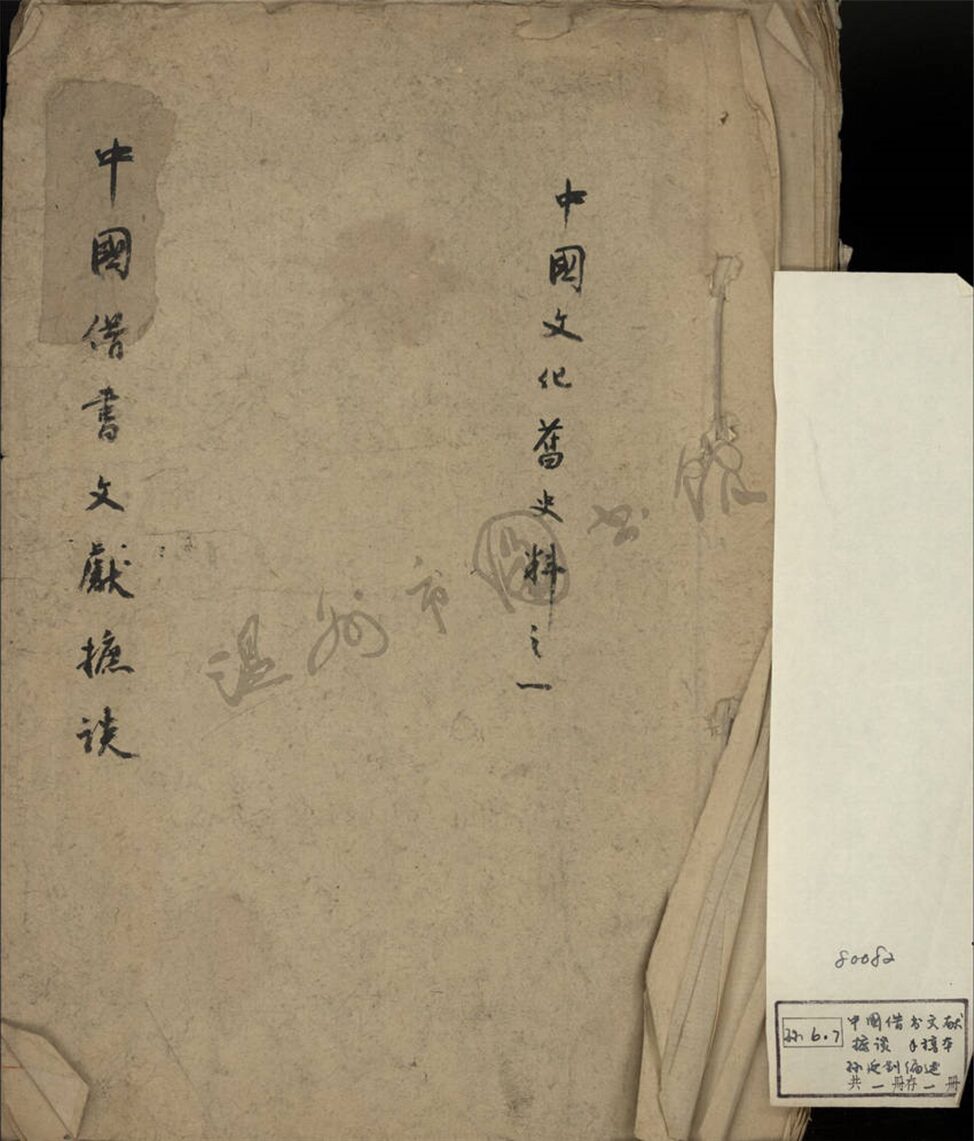 中國文化舊史料之一
中國借書文獻摭谈
温州市圖书馆
80082
孙6.7
中国借书文献
摭谈 手稿本
孙延钊编述
共一册存一册